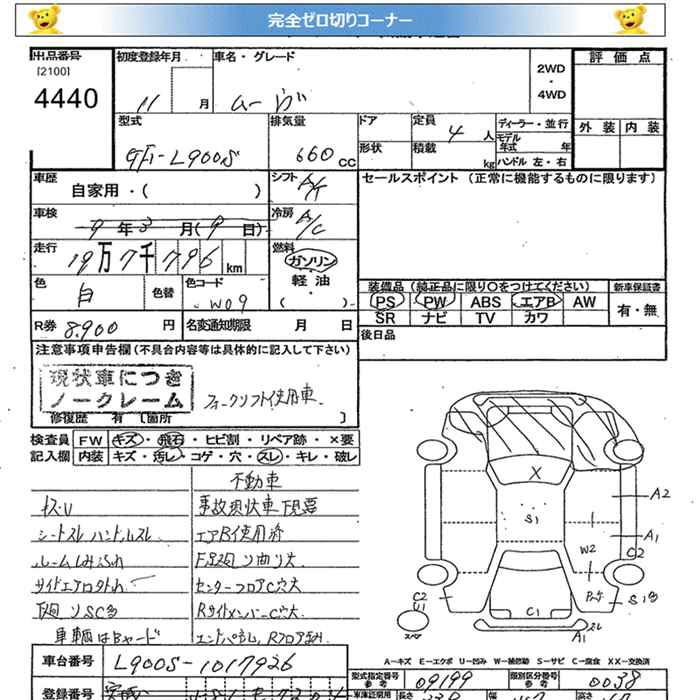 完全ゼロ切りコーナー
出品番号 初度登録年月 車名・グレード 評価点
[2100]
4440
11 月 ムーヴ
2WD
・
4WD
外装 内装
型式 排気量 ドア 定員 4人 ディーラー・並行
GF-L900S 660 CC 形状 積載 kg モデル年式 年
ハンドル 左・右
車歴 自家用・( ) シフト A/T セールスポイント (正常に機能するものに限ります)
車検 9年3月(9日) 冷房 A/C
走行 19万7千796 km 燃料 ガソリン
軽油
( )
色 白 色替 色コード W09
装備品 (純正品に限り○をつけてください) 新車保証書
PS PW ABS エアB AW 有・無
SR ナビ TV カワ
R券 8,900 円 名変通知期限 月 日
後日品
注意事項申告欄 (不具合内容等は具体的に記入して下さい)
現状車につき
ノークレーム フォークリフト使用車
修復歴 有 [箇所 ]
検査員 FW キズ・飛石・ヒビ割・リペア跡・×要
記入欄 内装 キズ・汚し・コゲ・穴・スレ・キレ・破レ
不動車
キズ・U 事故現状車 下見要
シートスレ ハンドルスレ エアB使用済
ルームしみ汚れ F足廻り曲り大
サイドエアロ外れ センターフロアC穴大
下廻りSC多 RサイドメンバーC穴大
車輌はBヤード
X
S1
A2
A1
C2
W2
S1多
C2
U1
C1
スペア
スレ
A1
A=キズ E=エクボ U=凹み W=補修跡 S=サビ C=腐食 XX=交換済
車台番号 L900S-1017926
型式指定番号
参考 09199 類別区分番号
参考 0038
登録番号
車庫証明用 長さ